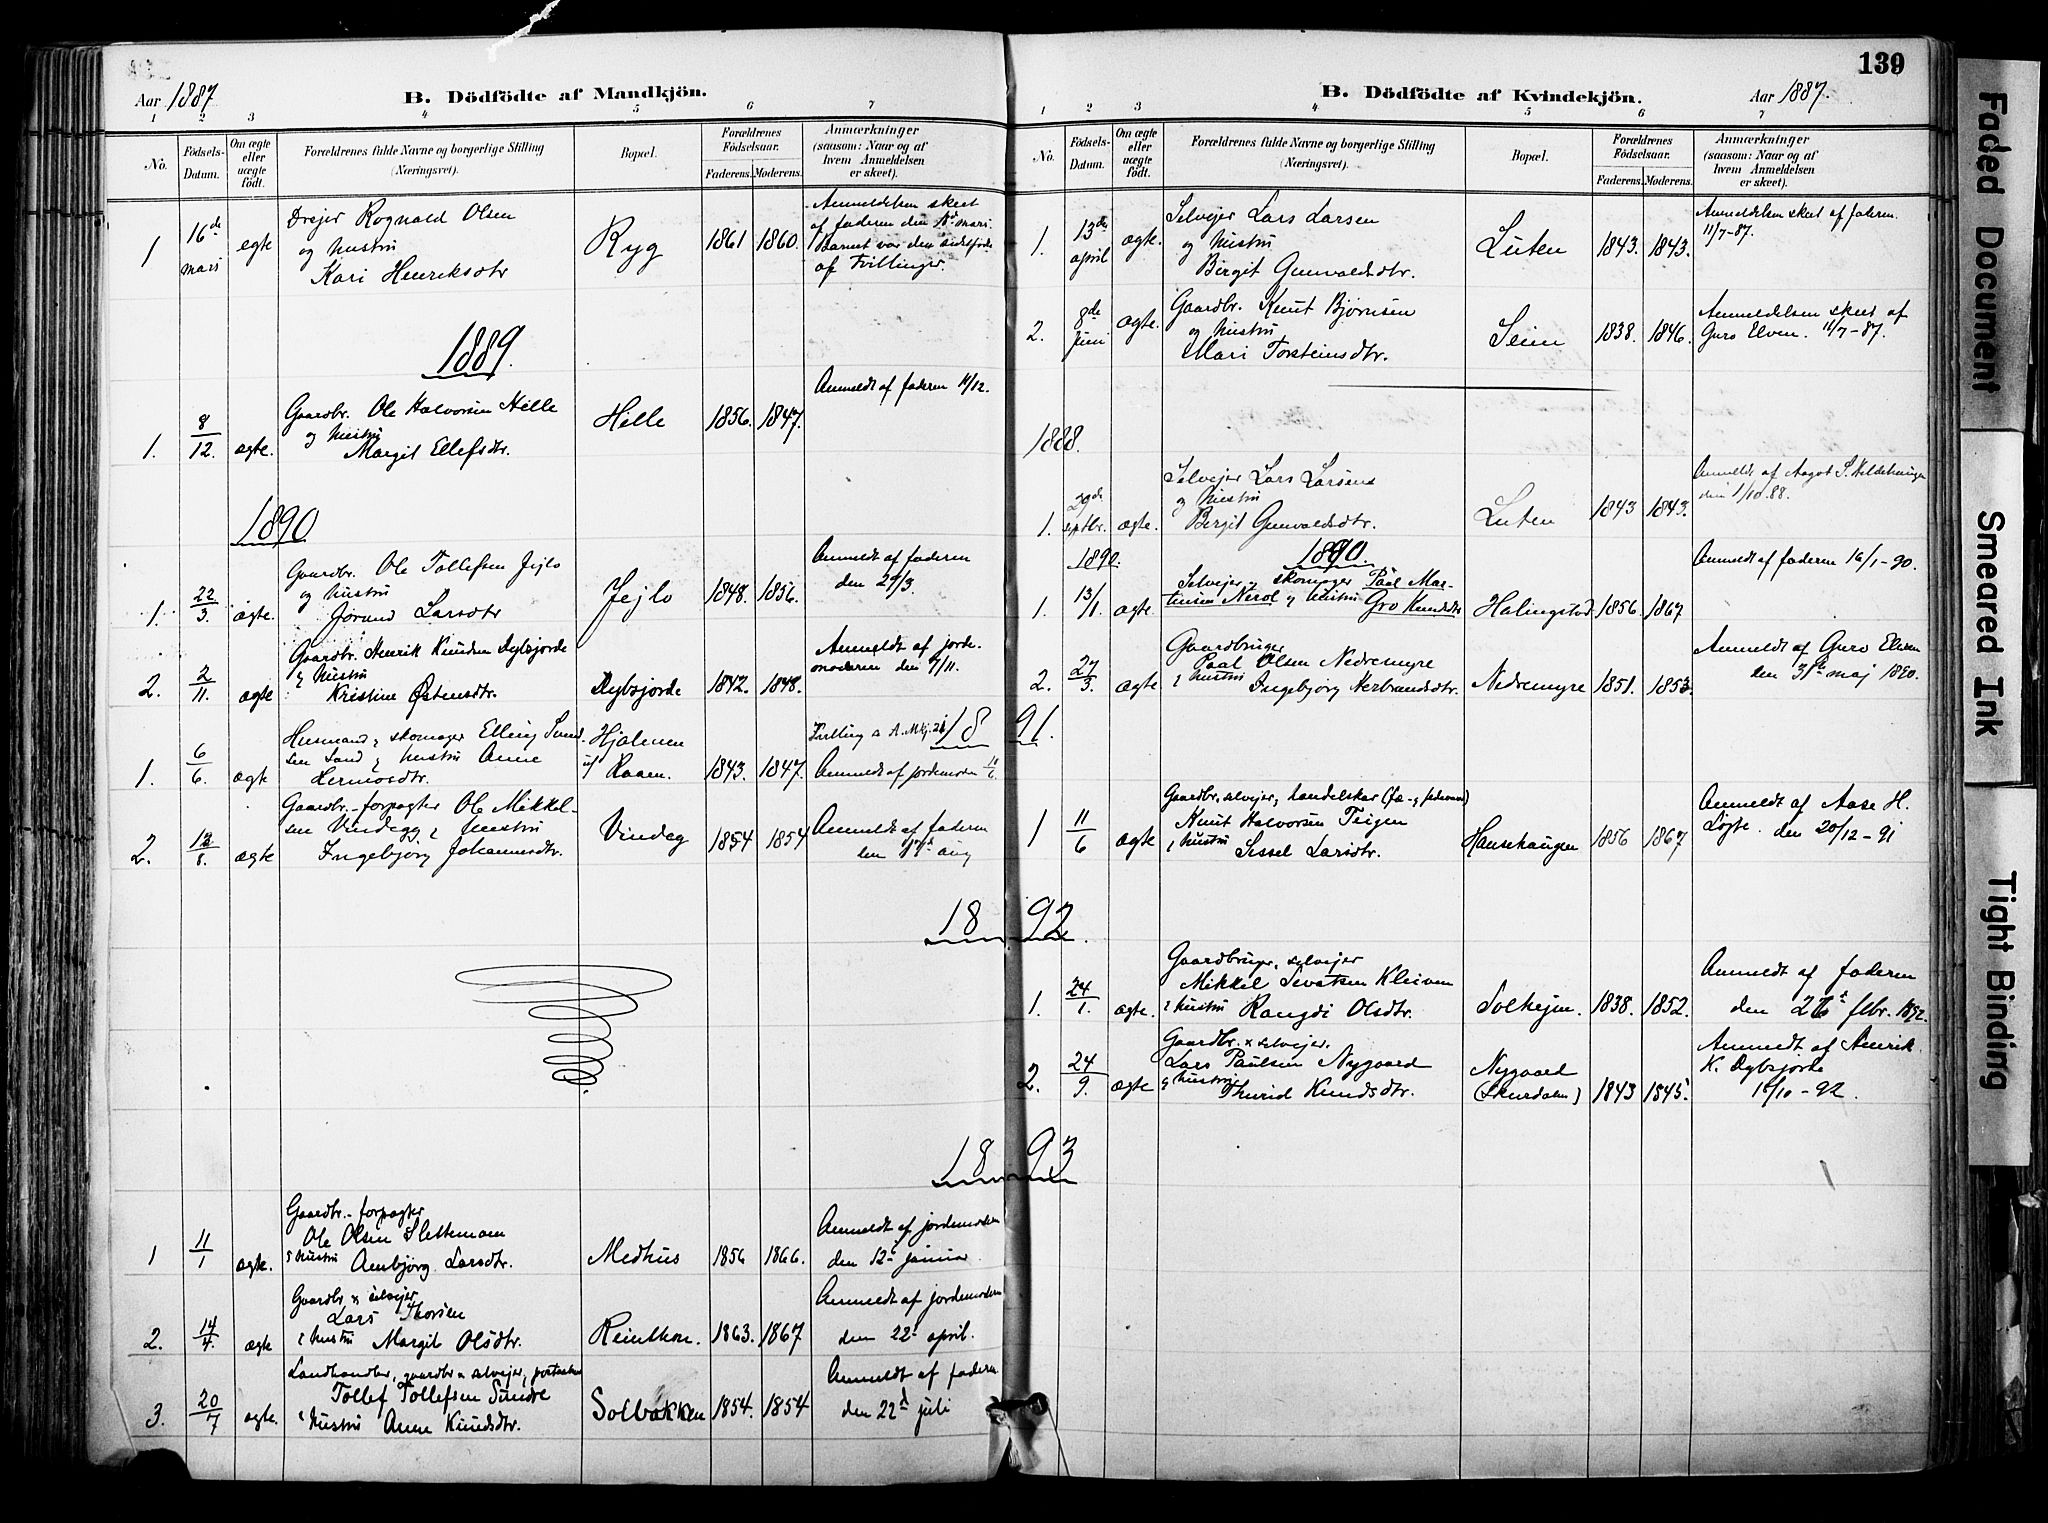 Aar 1887
B. Dödfödte af Mandkjön.
1 2 3 4 5 6 7
No.
Födsels-
Datum.
Om ægte
eller
uægte
födt.
Forældrenes fulde Navne og borgerlige Stilling
(Næringsvei).
Bopæl.
Forældrenes
Födselsaar.
Faderens. Moderens.
Anmærkninger
(saasom: Naar og af
hvem Anmeldelsen
er skeet).
1 16de mars egte
Drejer Rognald Olsen
og hustru
Kari Henriksdtr
Ryg 1861 1860.
Anmeldelsen skeet
af faderen den mars.
Barnet var den sidstfødte
af Tvillinger.
1889.
1. 8/12. ægte.
Gaardbr. Ole Halvorsen Helle
og hustru
Margit Ellefsdtr.
Helle 1856. 1847.
Anmeldt af faderen 11/12.
1890
1. 22/3. ægte.
Gaardbr. Ole Tollefsen Jejlo
og hustru
Jorund Larsdtr
Jejlo 1848. 1856.
Anmeldt af faderen
den 29/3.
2. 2/11. ægte
Gaardbr. Henrik Knudsen Dybsjorde
& hustru
Kristine Østensdtr.
Dybsjorde 1842. 1848.
Anmeldt af jorde-
moderen den 7/11.
1891.
1. 6/6. ægte
Husmand & skomager Elling Svend-
sen Sand & hustru Anne
Hermosdtr.
Hjalmen
u/ Raaen. 1843. 1847.
Tvilling a A. Mkj. 26
Anmeldt af jordemoren 11/6
2. 12/8. ægte
Gaardbr.-forpagter Ole Mikkel-
sen Vindegg & hustru
Ingebjørg Johannesdtr.
Vindeg 1854 1854
Anmeldt af faderen
den 17de aug
1892.
1893
1 11/1 ægte.
Gaardbr.-forpagter
Ole Olsen Slettemoen
& hustru Ambjørg Larsdtr.
Medhus 1856 1866.
Anmeldt af jordemoderen
den 12te januar
2. 14/4. ægte
Gaardbr & selvejer
Lars Thorsen
& hustru Margit Olsdtr.
Reinthon. 1863. 1867
Anmeldt af jordemoderen
den 22de april.
3. 20/7 ægte.
Landhandler, gaardbr & selvejer,
Tollef Tollefsen Sundre
& hustru Anne Knudsdtr.
Solbakken 1854. 1854
Anmeldt af faderen
den 22d juli
139
B. Dödfödte af Kvindekjön.
Aar 1887.
1 2 3 4 5 6 7
No.
Födsels-
Datum.
Om ægte
eller
uægte
födt.
Forældrenes fulde Navne og borgerlige Stilling
(Næringsvei).
Bopæl.
Forældrenes
Födselsaar.
Faderens. Moderens.
Anmærkninger
(saasom: Naar og af
hvem Anmeldelsen
er skeet).
1. 13de april ægte.
Selvejer Lars Larsen
og hustru
Birgit Gunvaldsdtr.
Luten 1843. 1843.
Anmeldelsen skeet af faderen
11/7-87.
2. 8de Juni ægte.
Gaardbr. Knut Bjørnsen
og hustru
Mari Torsteinsdtr.
Seim 1838. 1846.
Anmeldelsen skeet af
Guro Elven. 11/7-87.
1888.
1. 29de septbr. ægte.
Selvejer Lars Larsens
og hustru
Birgit Gunvaldsdtr.
Luten 1843 1843.
Anmeldt af Aagot S. Kildehaugen
den 1/10 88.
1890. 1890.
1. 13/1. ægte.
Selvejer & skomager Paal Mar-
tinsen Nerol & hustru Gro Knudsdtr
Halingstad 1856. 1867
Anmeldt af faderen 16/1-90.
2. 27/3. ægte
Gaardbruger
Paal Olsen Nedremyre
& hustru Ingebjørg Herbrandsdtr.
Nedremyre 1851. 1853.
Anmeldt af Guro Elven
den 31te maj 1890.
1 11/6 ægte
Gaardbr., selvejer, handelskar (fæ- & fedevare)
Knut Halvorsen Teigen
& hustru Sissel Larsdtr.
Hansehaugen 1856 1867
Anmeldt af Aase H.
Løgte. den 20/12-91
1. 24/1. ægte.
Gaardbruger, selvejer
Mikkel Sevatsen Kleiven
& hustru Rangdi Olsdtr.
Solhejm. 1838. 1852.
Anmeldt af faderen
den 26d febr. 1892.
2. 24/9. ægte
Gaardbr. & selvejer.
Lars Paulsen Nygaard
& hustru Thurid Knudsdtr.
Nygaard
(Skurdalen) 1843 1845.
Anmeldt af Henrik
K. Dybsjorde
18/10-92.
Faded Document
Smeared Ink
Tight Binding